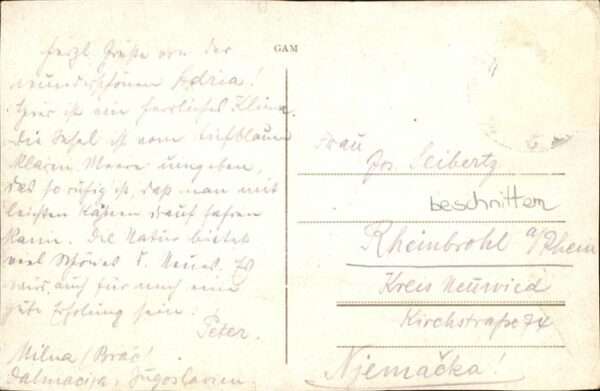 GAM
Herzl. Grüße von der
wunderschönen Adria!
Hier ist ein herrliches Klima.
Die Insel ist vom tiefblauen
klaren Meere umgeben,
das so ruhig ist, daß man mit
leichten Kähnen darauf fahren
kann. Die Natur bietet
viel Schönes u. Neues. Es
wird auch für mich eine
gute Erholung sein.
Peter.
Milna (Brač)
Dalmacija, Jugoslavien
Frau
Jos. Seibertz
beschnitten
Rheinbrohl a/Rhein
Kreis Neuwied
Kirchstraße 74
Njemačka!